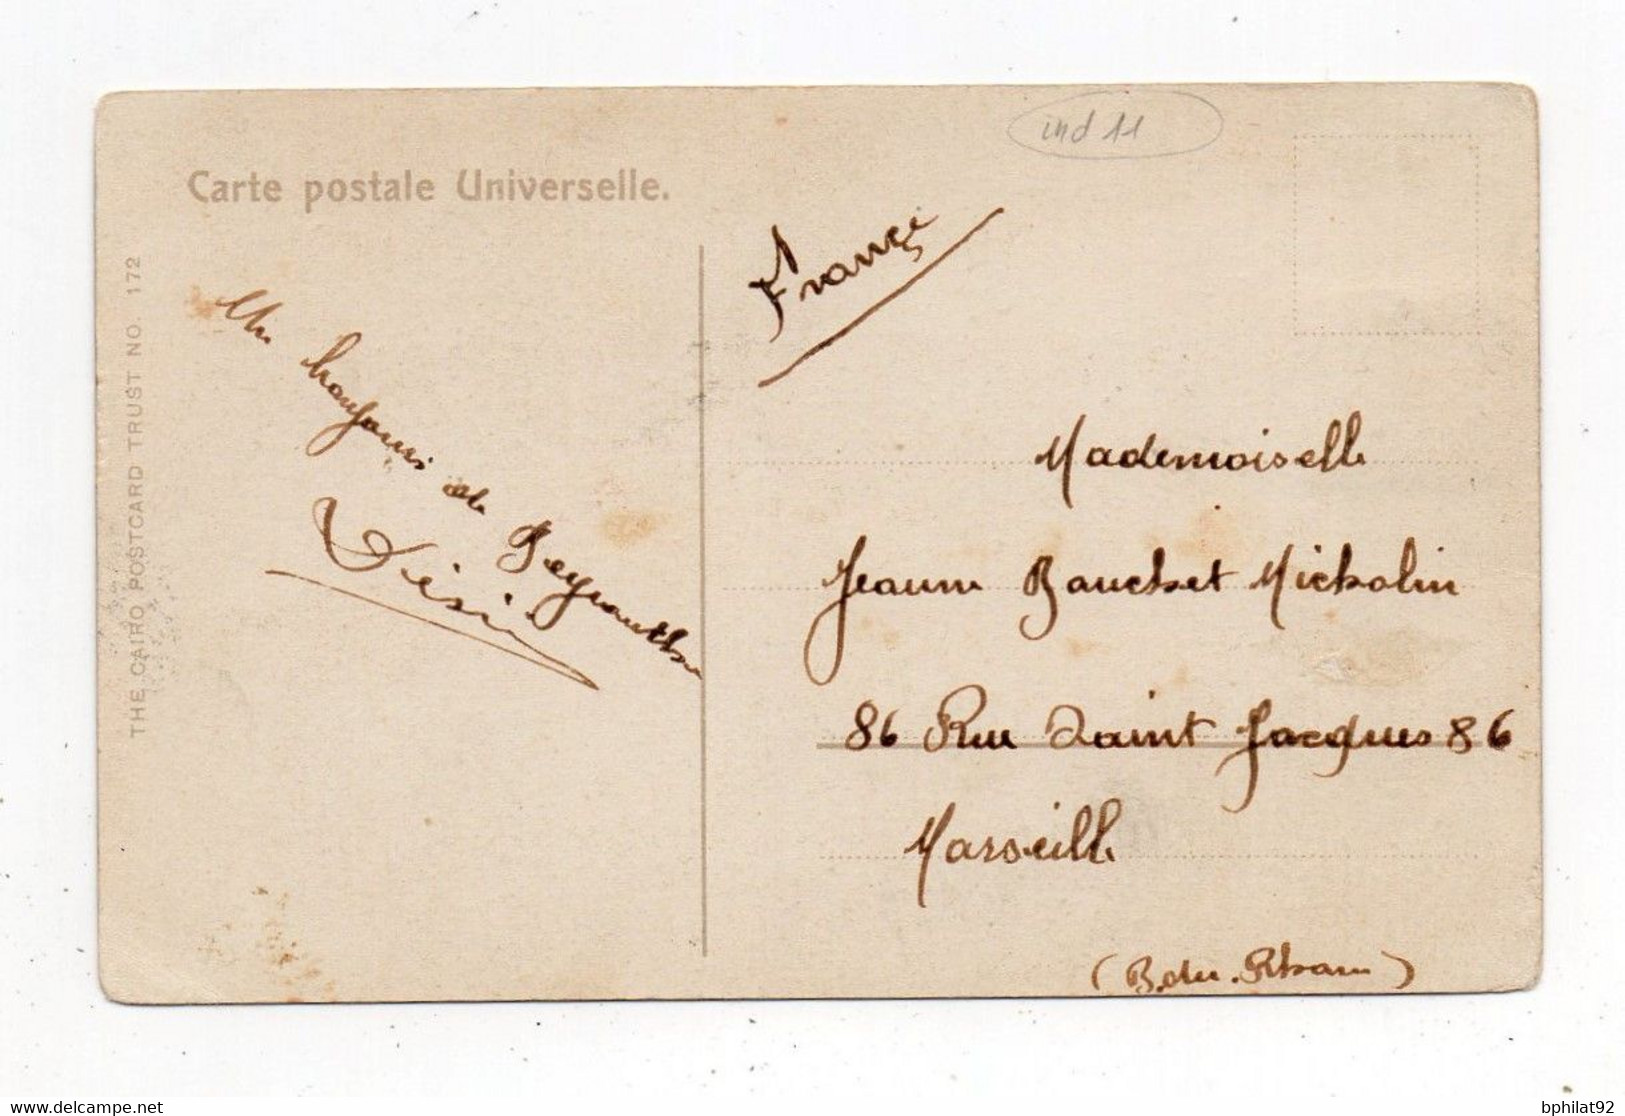 ind 11
Carte postale Universelle.
THE CAIRO POSTCARD TRUST NO. 172
France
Un de
Désiré
Mademoiselle
Jeanne Bauchet Micholin
86 Rue Saint Jacques 86
Marseille
(B. du. Rhone)
www.delcampe.net
bphilat92